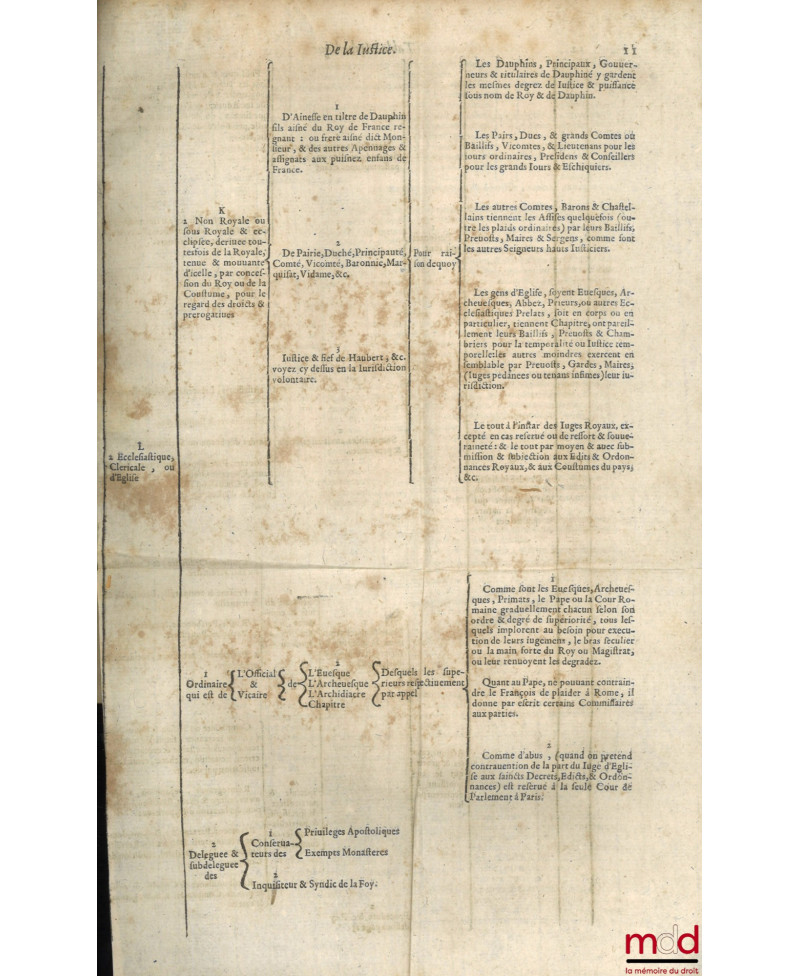 De la Iuſtice.
11
K
2 Non Royale ou
ſous Royale & ec-
clipſee, deriuee tou-
tesfois de la Royale,
tenue & mouuante
d'icelle, par conceſ-
ſion du Roy ou de la
Couſtume, pour le
regard des droicts &
prerogatiues
1
D'Aineſſe en tiltre de Dauphin
fils aiſné du Roy de France re-
gnant : ou frere aiſné dict Mon-
ſieur, & des autres Apennages &
aſſignats aux puiſnez enfans de
France.
2
De Pairie, Duché, Principauté,
Comté, Vicomté, Baronnie, Mar-
quiſat, Vidame, &c.
3
Iuſtice & fief de Haubert, &c.
voyez cy deſſus en la Iuriſdiction
volontaire.
Pour rai-
ſon dequoy
Les Dauphins, Principaux, Gouuer-
neurs & titulaires de Dauphiné y gardent
les meſmes degrez de Iuſtice & puiſſance
ſous nom de Roy & de Dauphin.
Les Pairs, Ducs, & grands Comtes ou
Baillifs, Vicomtes, & Lieutenans pour les
iours ordinaires, Preſidens & Conſeillers
pour les grands Iours & Eſchiquiers.
Les autres Comtes, Barons & Chaſtel-
lains tiennent les Aſſiſes quelquefois (ou-
tre les plaids ordinaires) par leurs Baillifs,
Preuoſts, Maires & Sergens, comme ſont
les autres Seigneurs hauts Iuſticiers.
Les gens d'Egliſe, ſoyent Eueſques, Ar-
cheueſques, Abbez, Prieurs, ou autres Ec-
cleſiaſtiques Prelats, ſoit en corps ou en
particulier, tiennent Chapitre, ont pareil-
lement leurs Baillifs, Preuoſts & Cham-
briers pour la temporalité ou Iuſtice tem-
porelle: les autres moindres exercent en
ſemblable par Preuoſts, Gardes, Maires,
(Iuges pedanees ou tenans infimes) leur iu-
riſdiction.
Le tout à l'inſtar des Iuges Royaux, ex-
cepté en cas reſerué ou de reſſort & ſouue-
raineté : & le tout par moyen & auec ſub-
miſſion & ſubiection aux Edits & Ordon-
nances Royaux, & aux Couſtumes du pays,
&c.
L
2 Eccleſiaſtique,
Clericale, ou
d'Egliſe
1
Ordinaire
qui eſt de
L'Official
&
Vicaire
de
2
L'Eueſque
L'Archeueſque
L'Archidiacre
Chapitre
Deſquels les ſupe-
rieurs reſpectiuement
par appel
1
Comme ſont les Eueſques, Archeueſ-
ques, Primats, le Pape ou la Cour Ro-
maine graduellement chacun ſelon ſon
ordre & degré de ſuperiorité, tous leſ-
quels implorent au beſoin pour execu-
tion de leurs iugemens, le bras ſeculier
ou la main forte du Roy ou Magiſtrat,
ou leur renuoyent les degradez.
Quant au Pape, ne pouuant contrain-
dre le François de plaider à Rome, il
donne par eſcrit certains Commiſſaires
aux parties.
2
Comme d'abus, (quand on pretend
contrauention de la part du Iuge d'Egli-
ſe aux ſaincts Decrets, Edicts, & Ordon-
nances) eſt reſerué à la ſeule Cour de
Parlement à Paris.
2
Deleguee &
ſubdeleguee
des
1
Conſerua-
teurs des
Priuileges Apoſtoliques
Exempts Monaſteres
2
Inquiſiteur & Syndic de la Foy.
mdd
la mémoire du droit